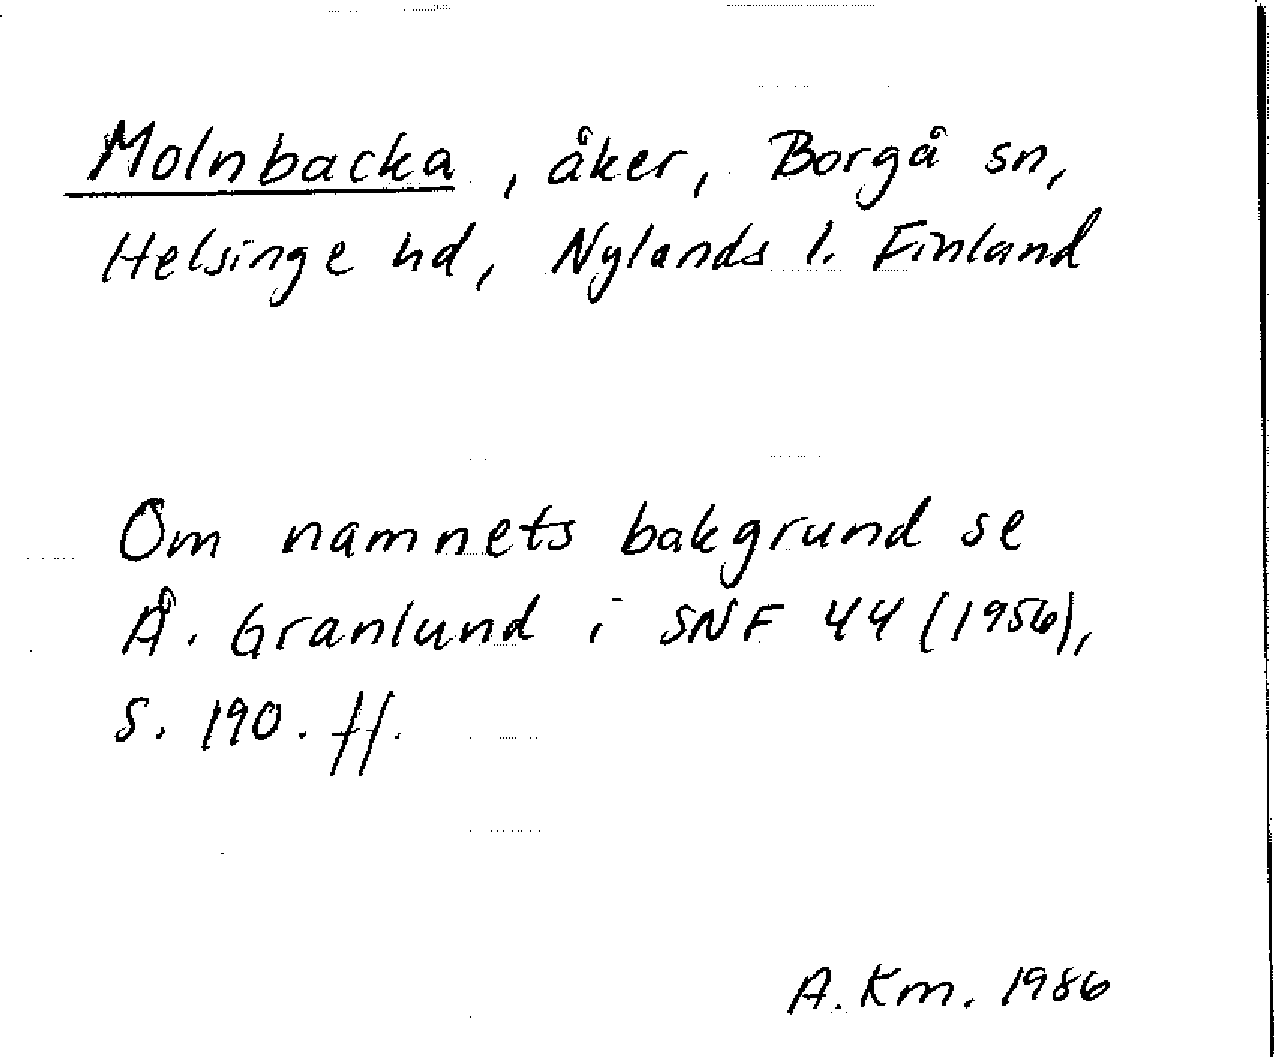 Molnbacka, åker, Borgå sn,
Helsinge hd, Nylands l. Finland
Om namnets bakgrund se
Å. Granlund i SNF 44 (1956),
s. 190. ff.
A. Km. 1986